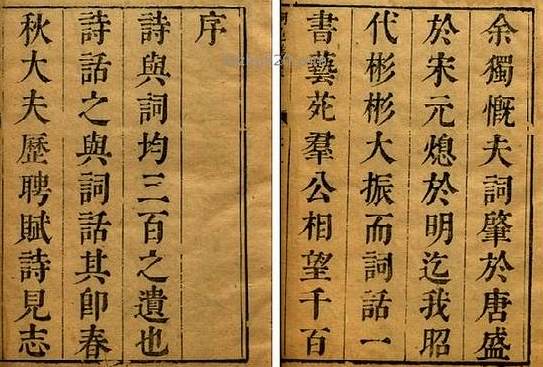 序
詩與詞均三百之遺也
詩話之與詞話其卽春
秋大夫歷聘賦詩見志
余獨慨夫詞肇於唐盛
於宋元熄於明迄我昭
代彬彬大振而詞話一
書藝苑羣公相望千百